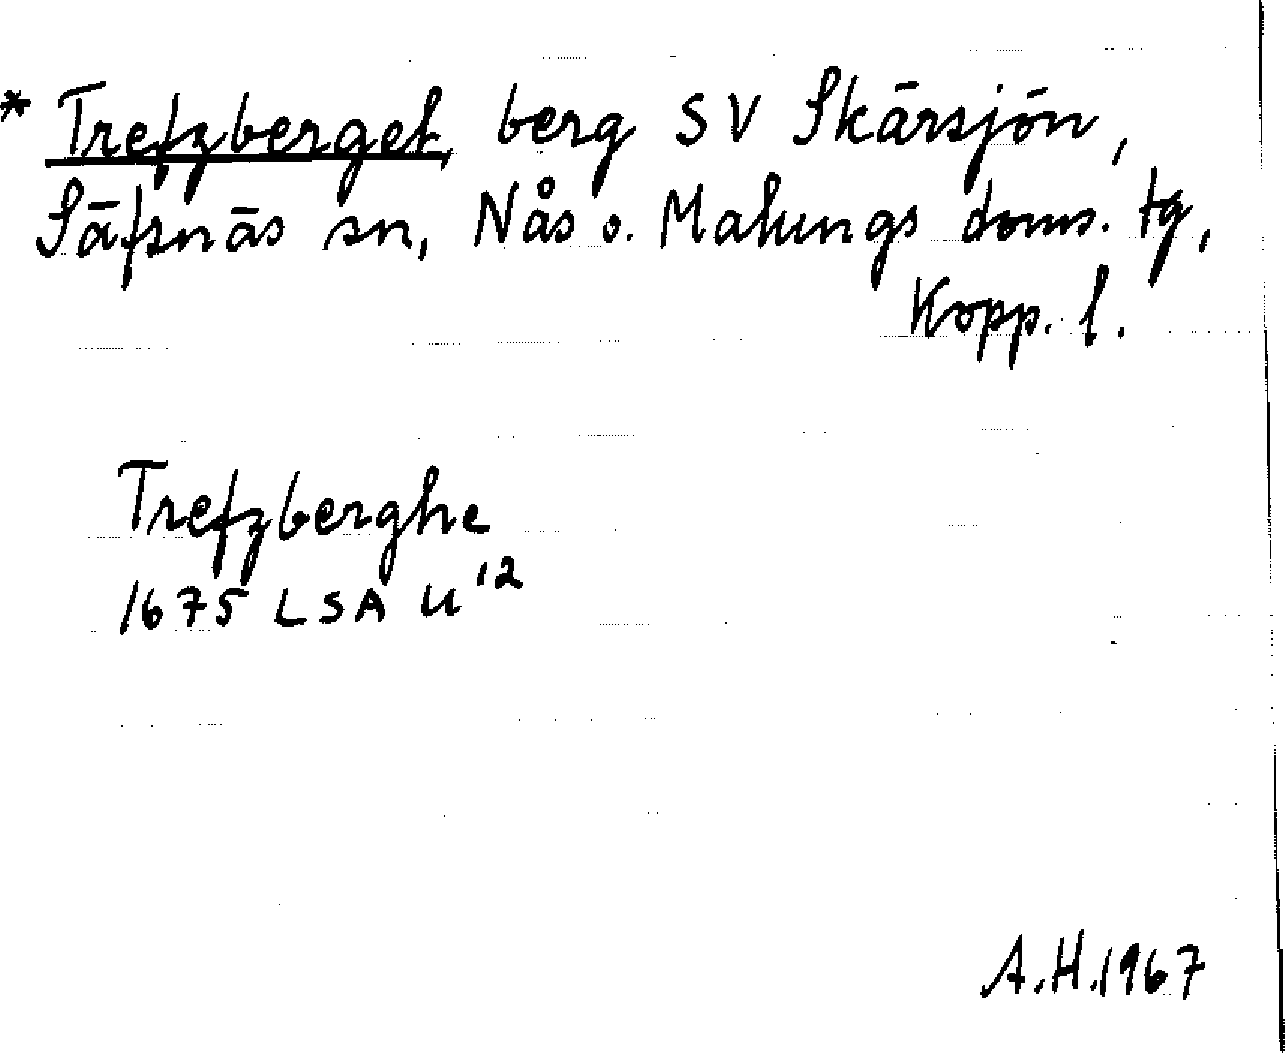 * Trefzberget, berg SV Skärsjön,
Säfsnäs sn, Nås o. Malungs doms. tg,
Kopp. l.
Trefzberghe
1675 LSA U 12
A.H. 1967